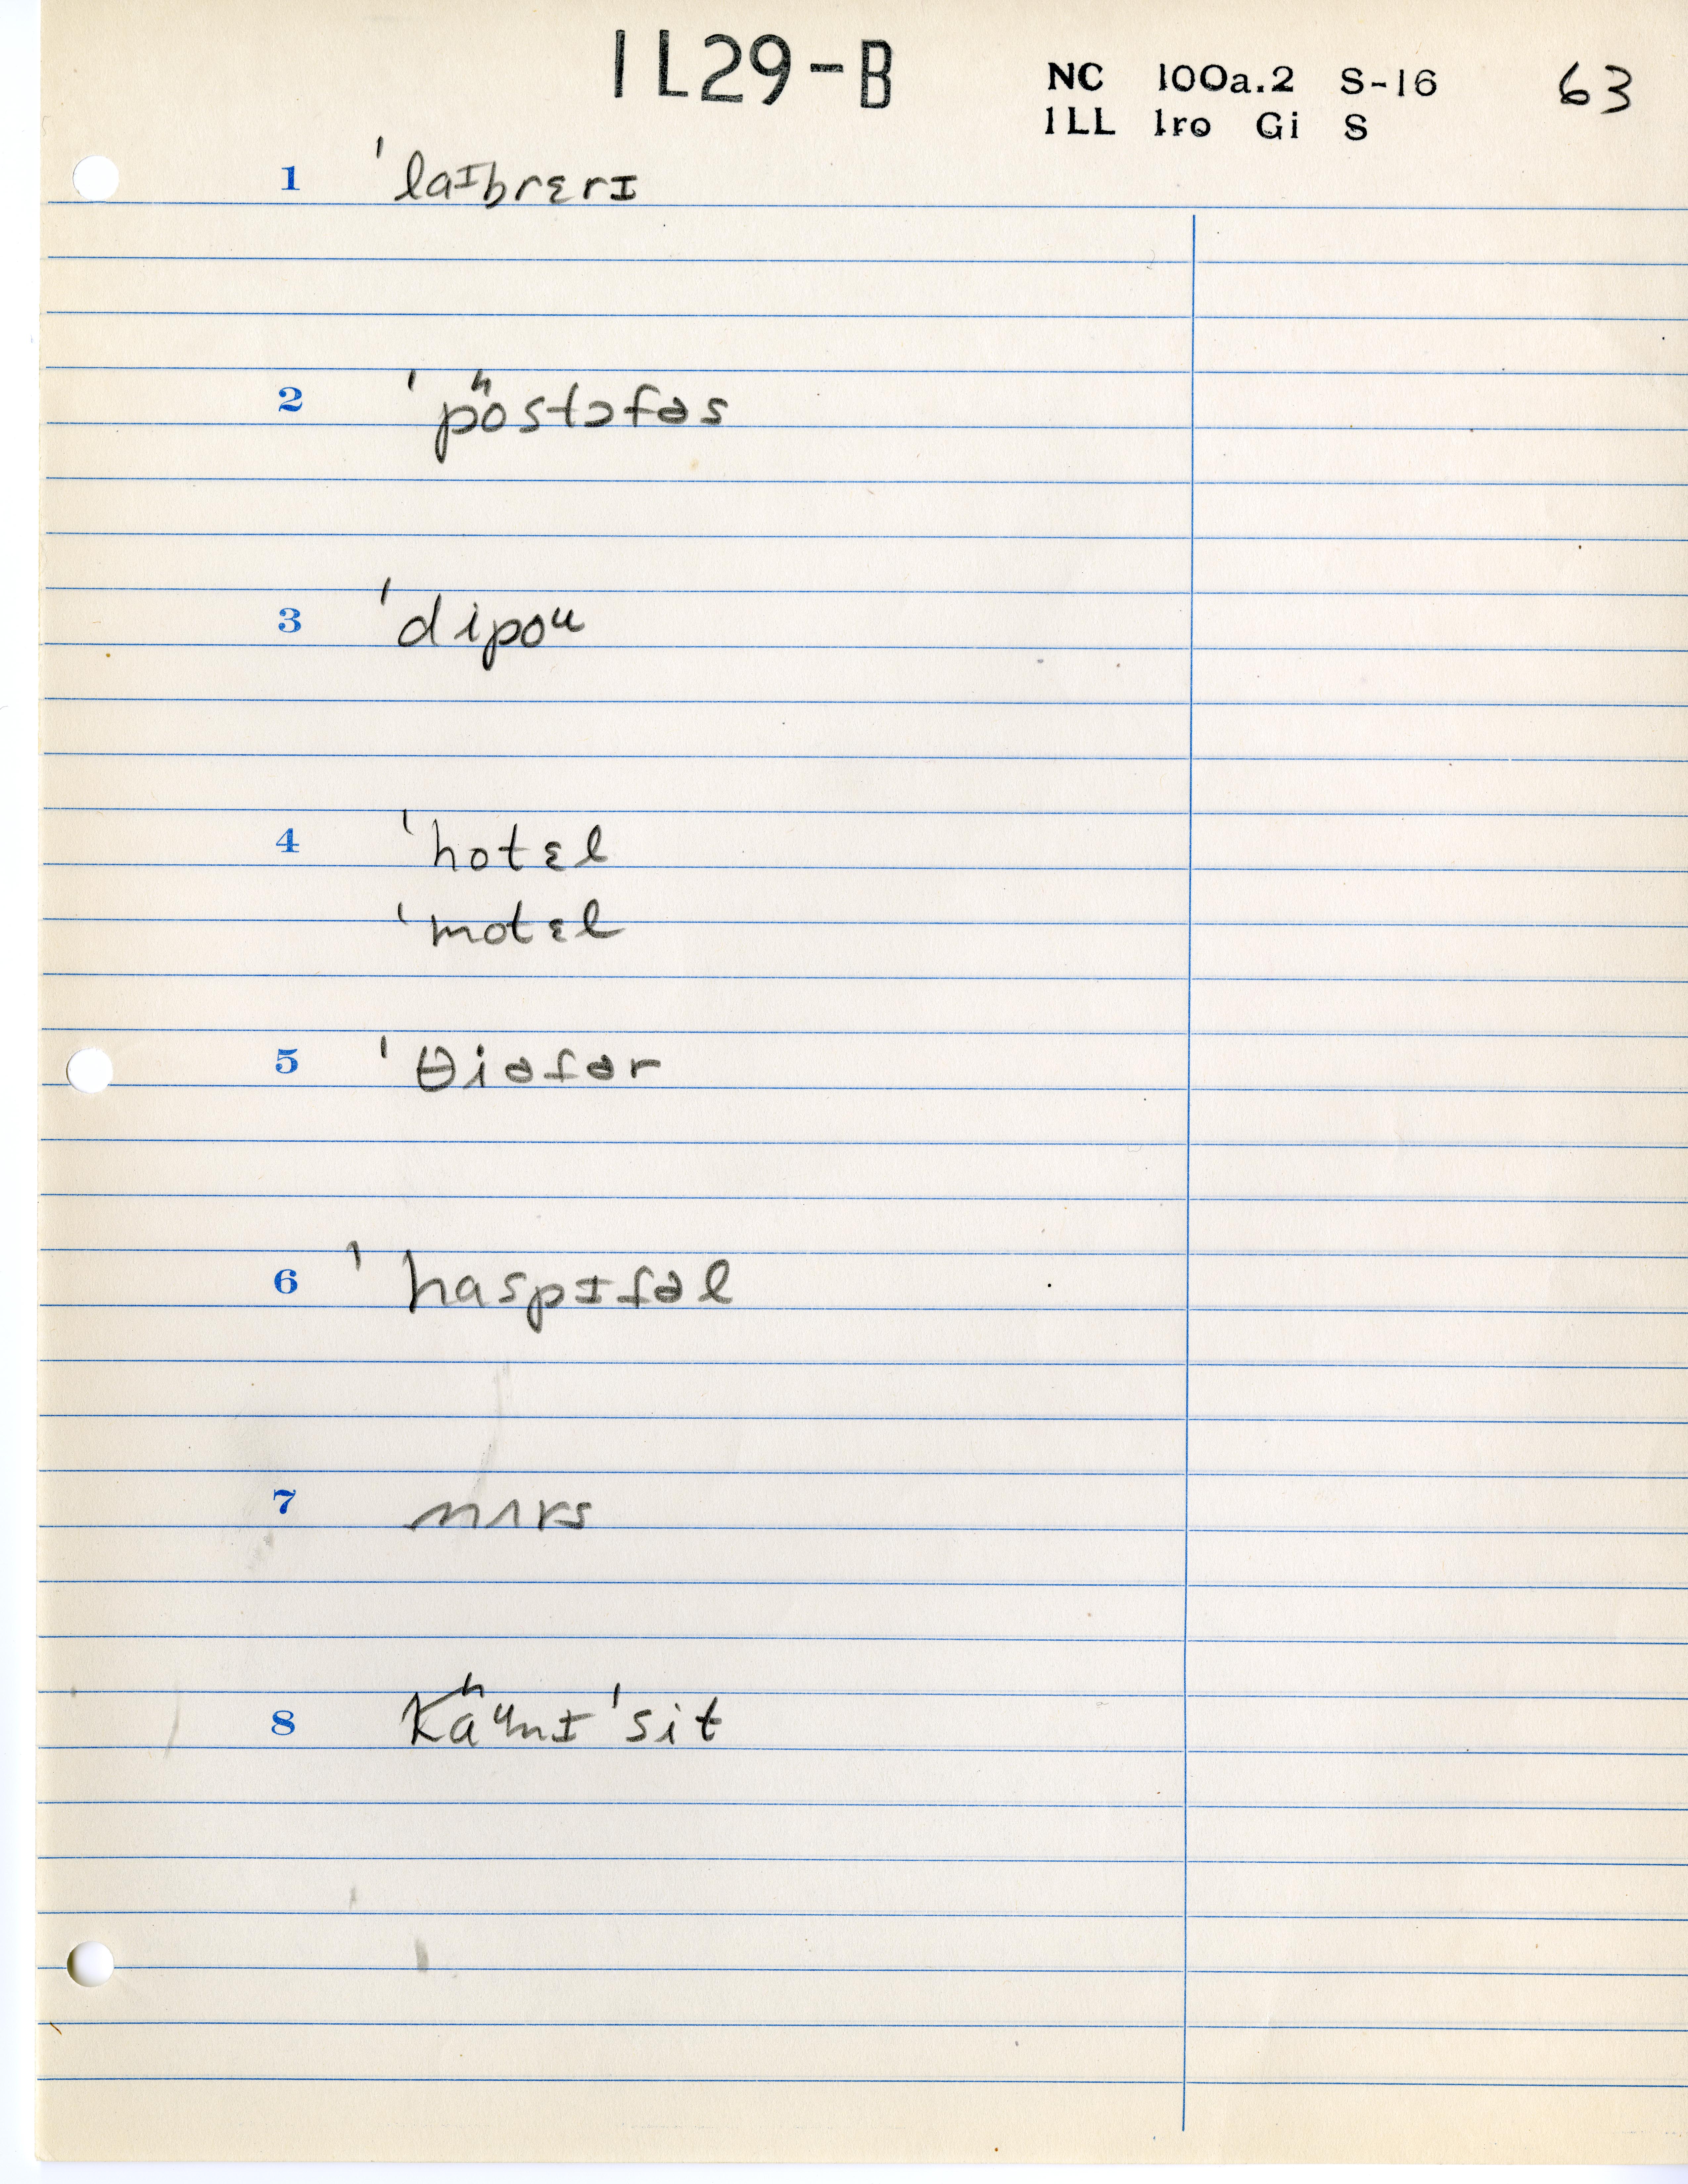 IL29-B
NC 100a.2 S-16 63
ILL Iro Gi S
1 ˈlaᶦbrɛrɪ
2 ˈpʰöstɔfəs
3 ˈdipoᵘ
4 ˈhotɛl
ˈmotɛl
5 ˈθiəɾər
6 ˈhaspɪɾəl
7 nʌrs
8 kʰäᵘnɪˈsit